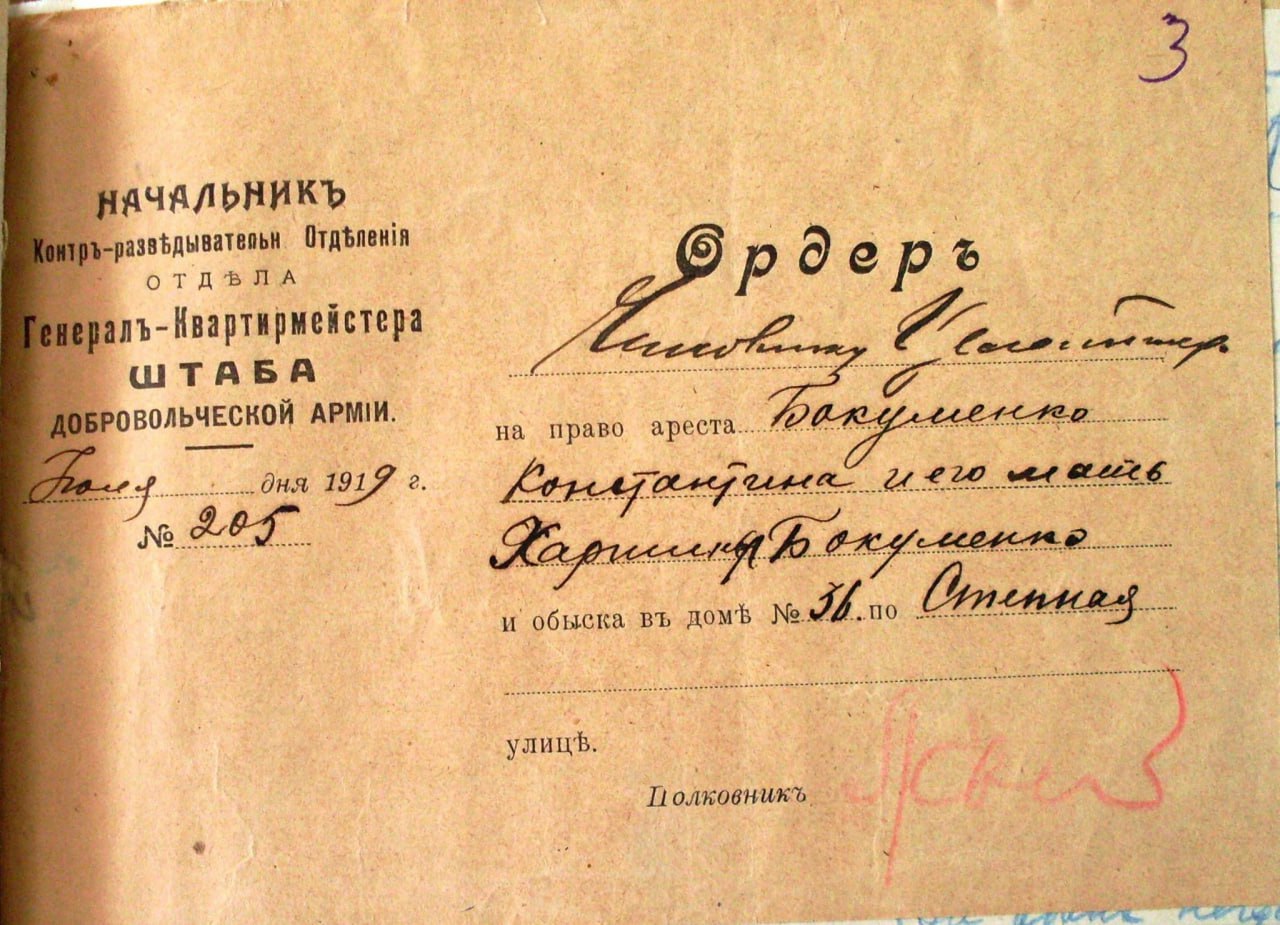 3
НАЧАЛЬНИКЪ
Контръ-развѣдывательн Отдѣленія
ОТДѢЛА
Генералъ-Квартирмейстера
ШТАБА
ДОБРОВОЛЬЧЕСКОЙ АРМІИ.
Июля дня 1919 г.
№ 205
Ордеръ
Чиновнику
на право ареста Бокуменко
Константина и его мать
Харитину Бокуменко
и обыска въ домѣ № 36. по Степная
улицѣ.
Полковникъ